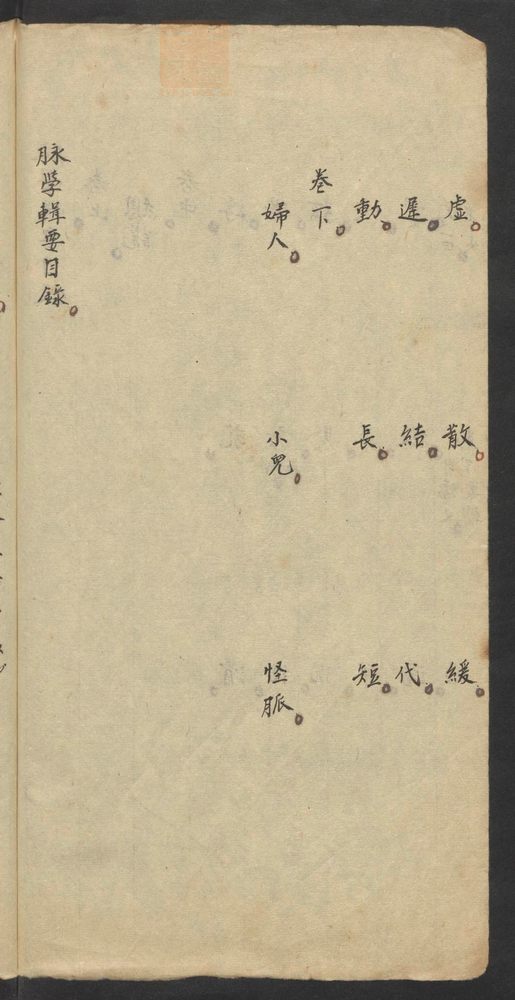 虛。散。緩。
遲。結。代。
動。長。短。
卷下。
婦人。小兒。怪脈。
脉學輯要目錄。